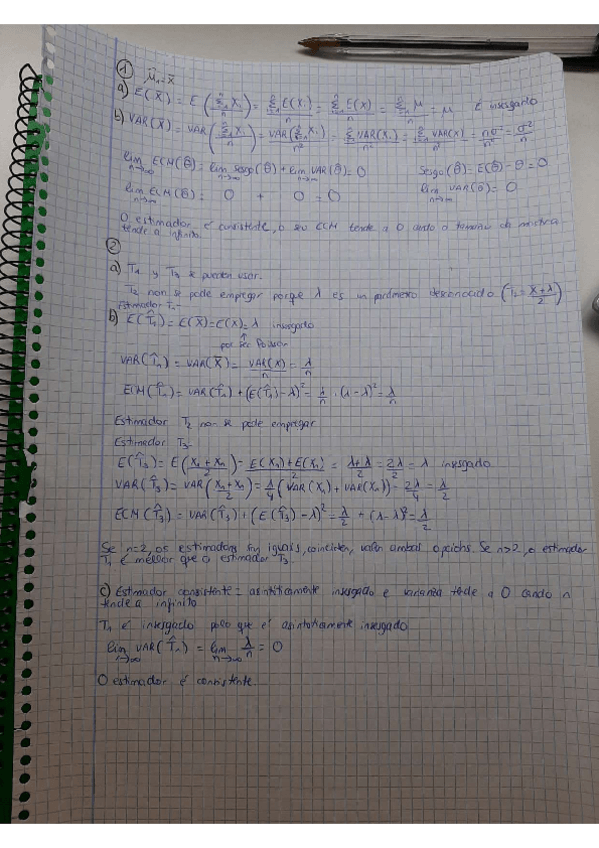 ① μ̂₁ = x̄
a) E(X̄) = E(Σᵢ₌₁ⁿ Xᵢ / n) = Σᵢ₌₁ⁿ E(Xᵢ) / n = Σᵢ₌₁ⁿ E(X) / n = Σᵢ₌₁ⁿ μ / n = μ É insesgado
b) VAR(X̄) = VAR(Σᵢ₌₁ⁿ Xᵢ / n) = VAR(Σᵢ₌₁ⁿ Xᵢ) / n² = Σᵢ₌₁ⁿ VAR(Xᵢ) / n² = Σᵢ₌₁ⁿ VAR(X) / n² = nσ² / n² = σ² / n
lim n→∞ ECM(θ̂) = lim n→∞ sesgo(θ̂) + lim n→∞ VAR(θ̂) = 0 Sesgo(θ̂) = E(θ̂) - θ = 0
lim n→∞ ECM(θ̂) = 0 + 0 = 0 lim n→∞ VAR(θ̂) = 0
O estimador é consistente, o seu ECM tende a 0 cando o tamaño da mostra
tende a infinito.
②
a) T₁ y T₃ se pueden usar.
T₂ non se pode empregar porque λ es un parámetro descoñocido (T₂ = X̄ + λ / 2)
Estimador T₁-
b) E(T̂₁) = E(X̄) = E(X) = λ insesgado
por ser Poisson
VAR(T̂₁) = VAR(X̄) = VAR(X) / n = λ / n
ECM(T̂₁) = VAR(T̂₁) + (E(T̂₁) - λ)² = λ / n + (λ - λ)² = λ / n
Estimador T₂ non se pode empregar
Estimador T₃-
E(T̂₃) = E(X₁ + Xₙ / 2) = E(X₁) + E(Xₙ) / 2 = λ + λ / 2 = 2λ / 2 = λ insesgado
VAR(T̂₃) = VAR(X₁ + Xₙ / 2) = 1/4 (VAR(X₁) + VAR(Xₙ)) = 2λ / 4 = λ / 2
ECM(T̂₃) = VAR(T̂₃) + (E(T̂₃) - λ)² = λ / 2 + (λ - λ)² = λ / 2
Se n=2, os estimadores son iguais, coinciden, valen ambas opcións. Se n>2, o estimador
T₁ é mellor que o estimador T₃.
c) Estimador consistente = asintóticamente insesgado e varianza tende a 0 cando n
tende a infinito
T₁ é insesgado polo que é asintoticamente insesgado
lim n→∞ VAR(T̂₁) = lim n→∞ λ / n = 0
O estimador é consistente.